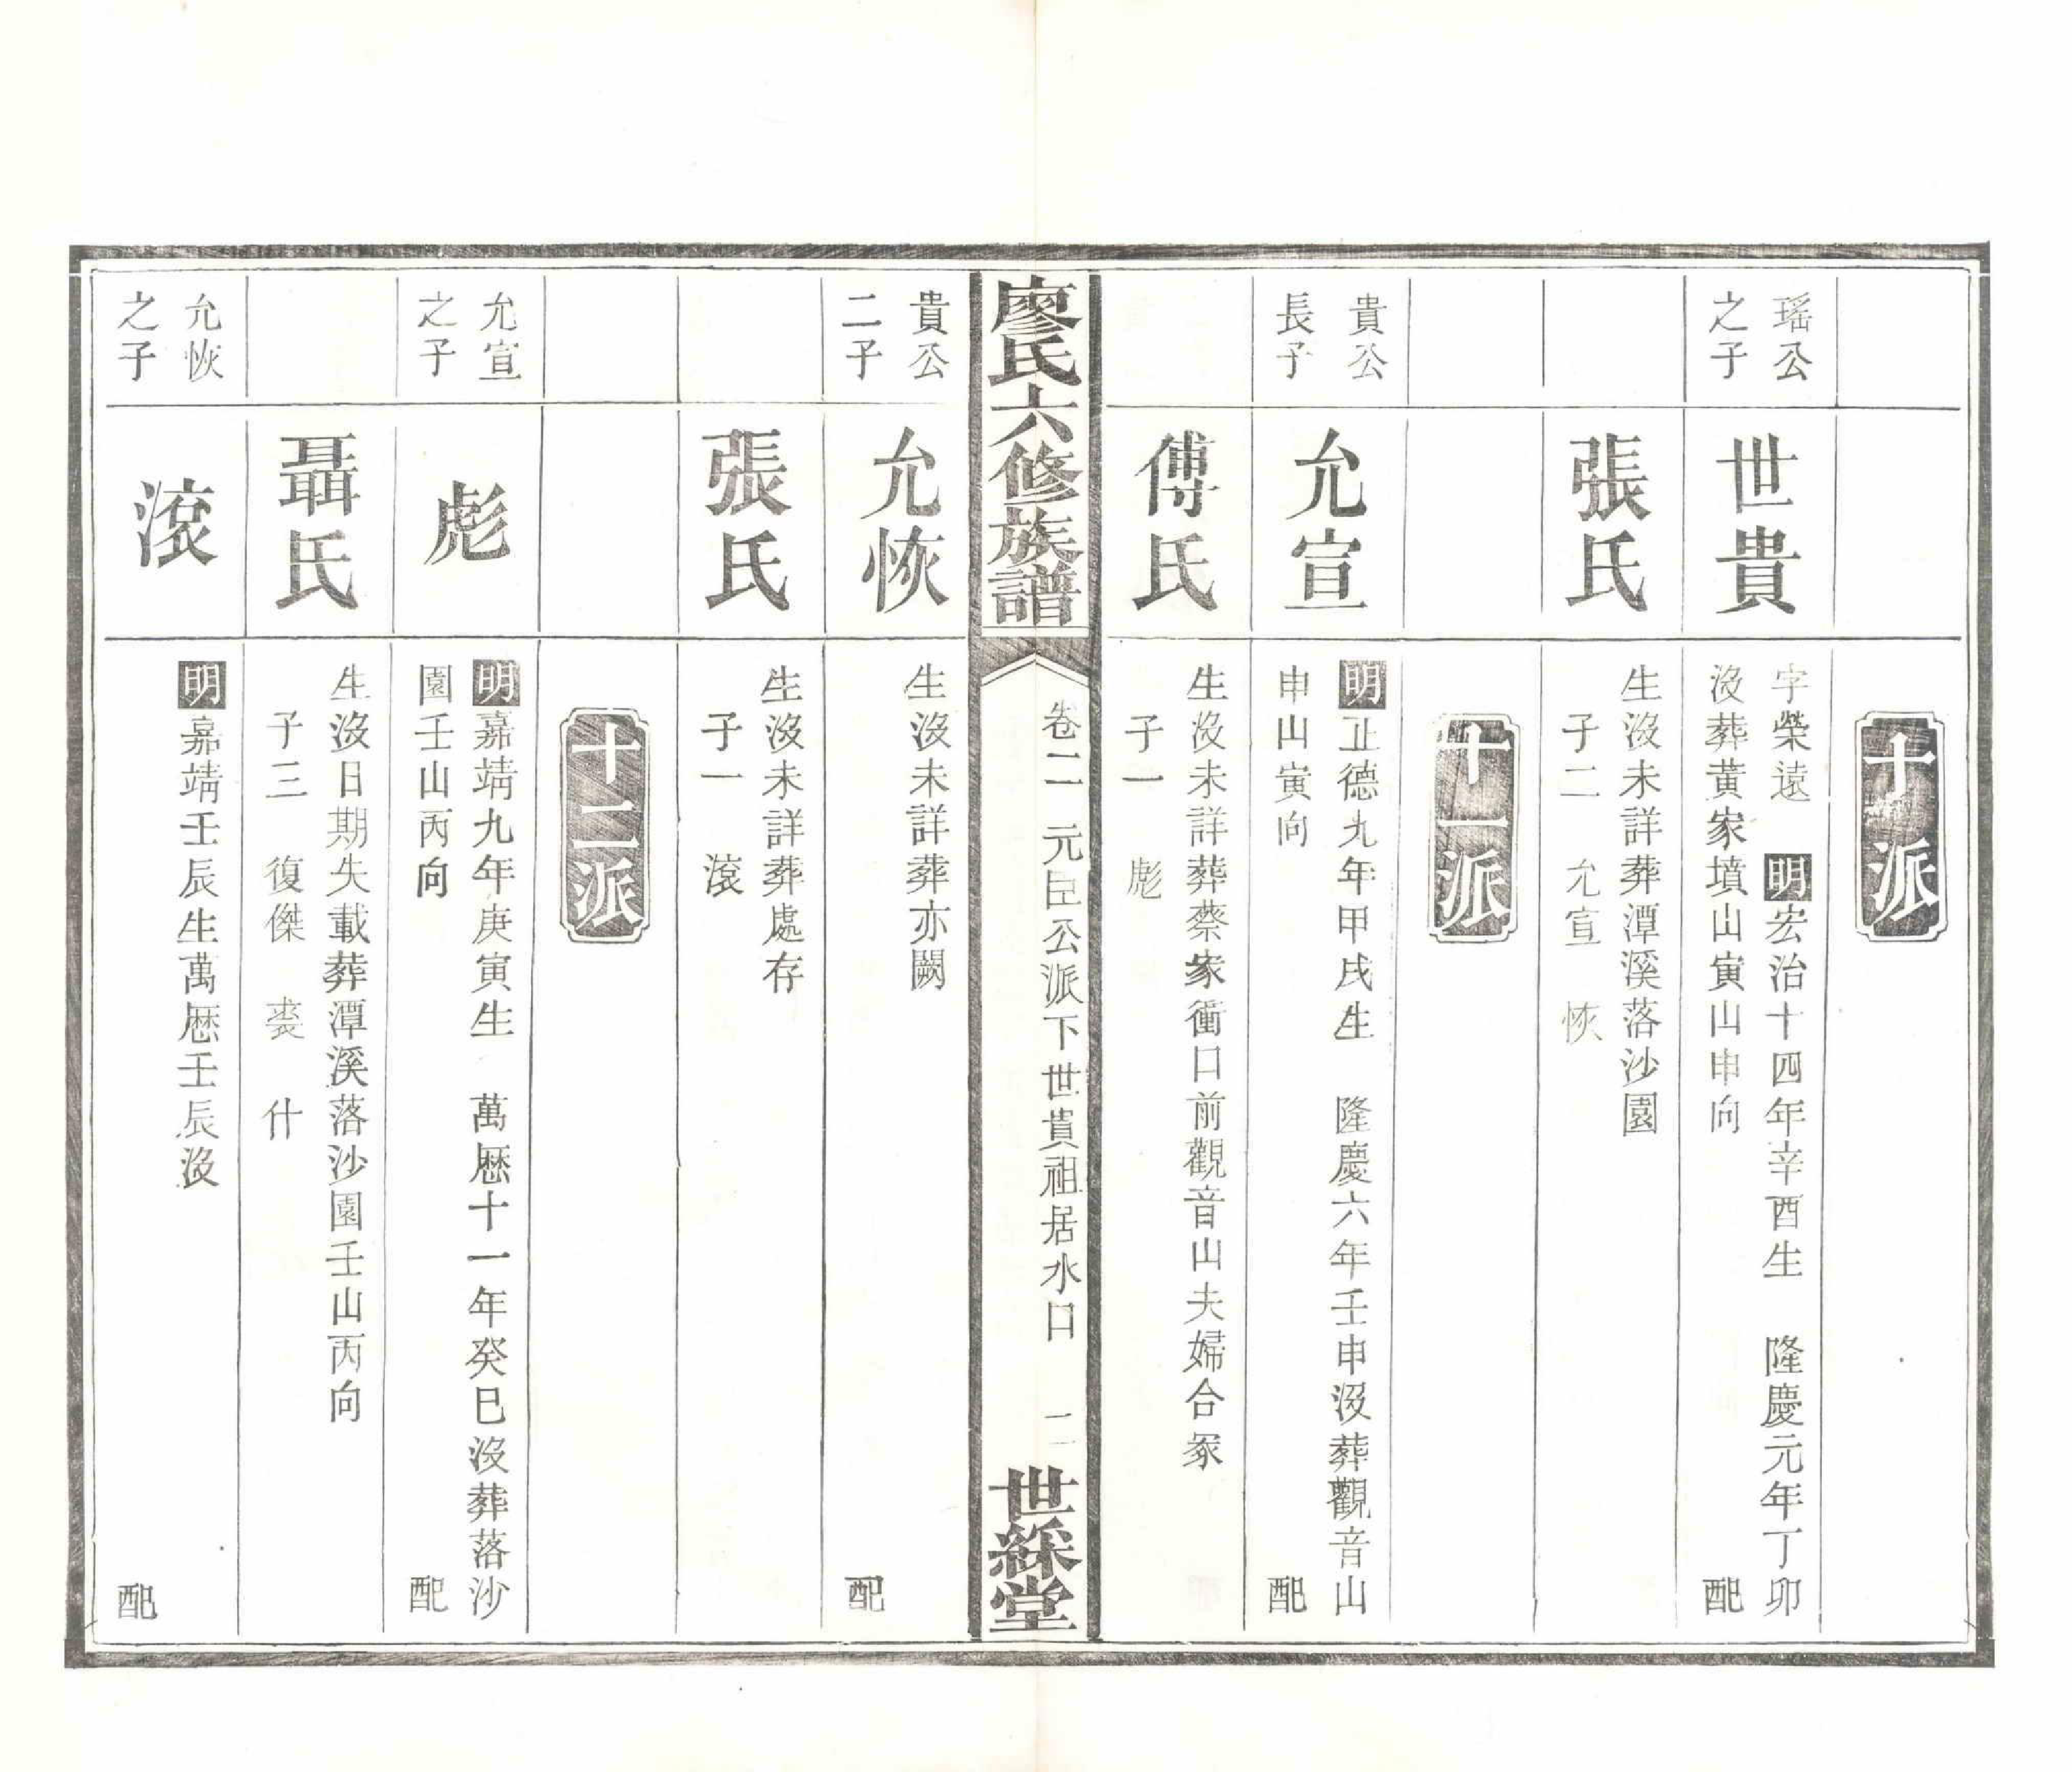 十派
瑤公
之子
世貴
字榮遠　明宏治十四年辛酉生　隆慶元年丁卯
沒葬黃家墳山寅山申向　配
張氏
生沒未詳葬潭溪落沙園
子二　允宣　恢
十一派
貴公
長子
允宣
明正德九年甲戌生　隆慶六年壬申沒葬觀音山
申山寅向　配
傅氏
生沒未詳葬蔡家衝口前觀音山夫婦合冢
子一　彪
廖氏六修族譜
卷二　元臣公派下世貴祖居水口　二
世綵堂
貴公
二子
允恢
生沒未詳葬亦闕
配
張氏
生沒未詳葬處存
子一　滾
十二派
允宣
之子
彪
明嘉靖九年庚寅生　萬歷十一年癸巳沒葬落沙
園壬山丙向　配
聶氏
生沒日期失載葬潭溪落沙園壬山丙向
子三　復傑　裘　什
允恢
之子
滾
明嘉靖壬辰生萬歷壬辰沒
配